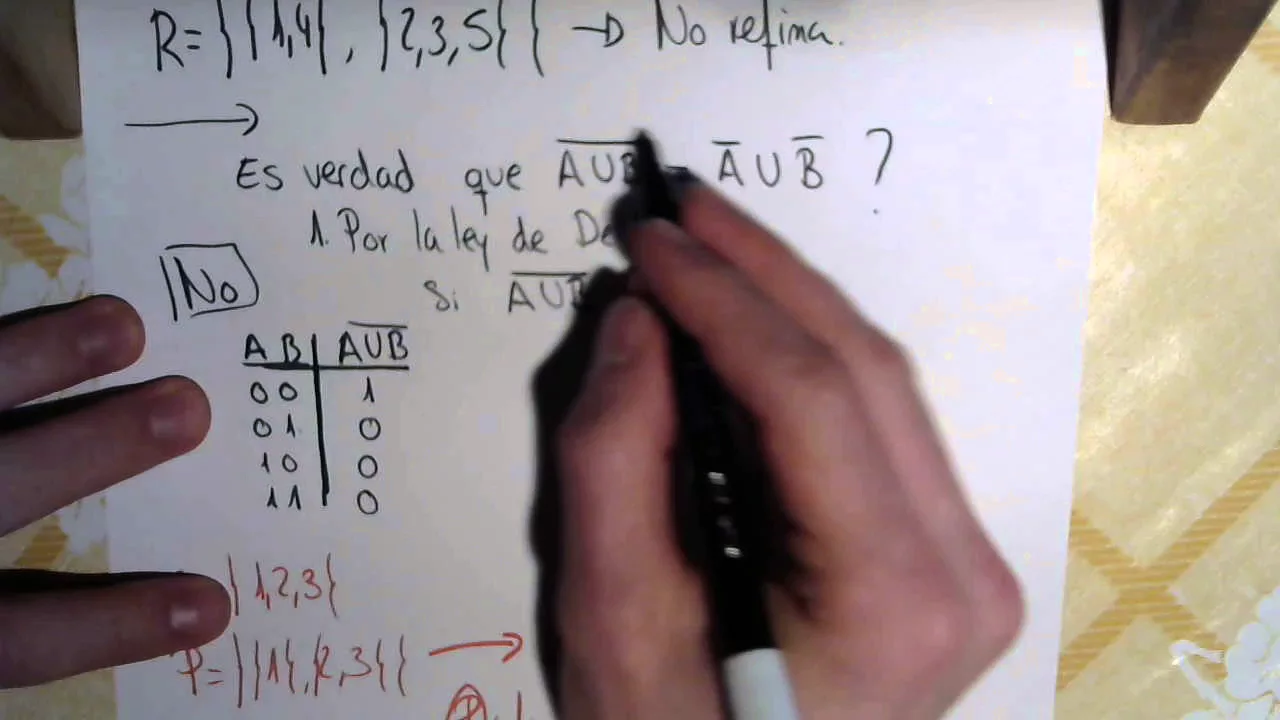 R= {{1,4}, {2,3,5}} → No refina.
→
Es verdad que A∪B = A̅ ∪ B̅ ?
1. Por la ley de
No
si A̅∪̅B̅
A B | A̅∪̅B̅
0 0 | 1
0 1 | 0
1 0 | 0
1 1 | 0
{1,2,3}
P= {{1},{2,3}} →